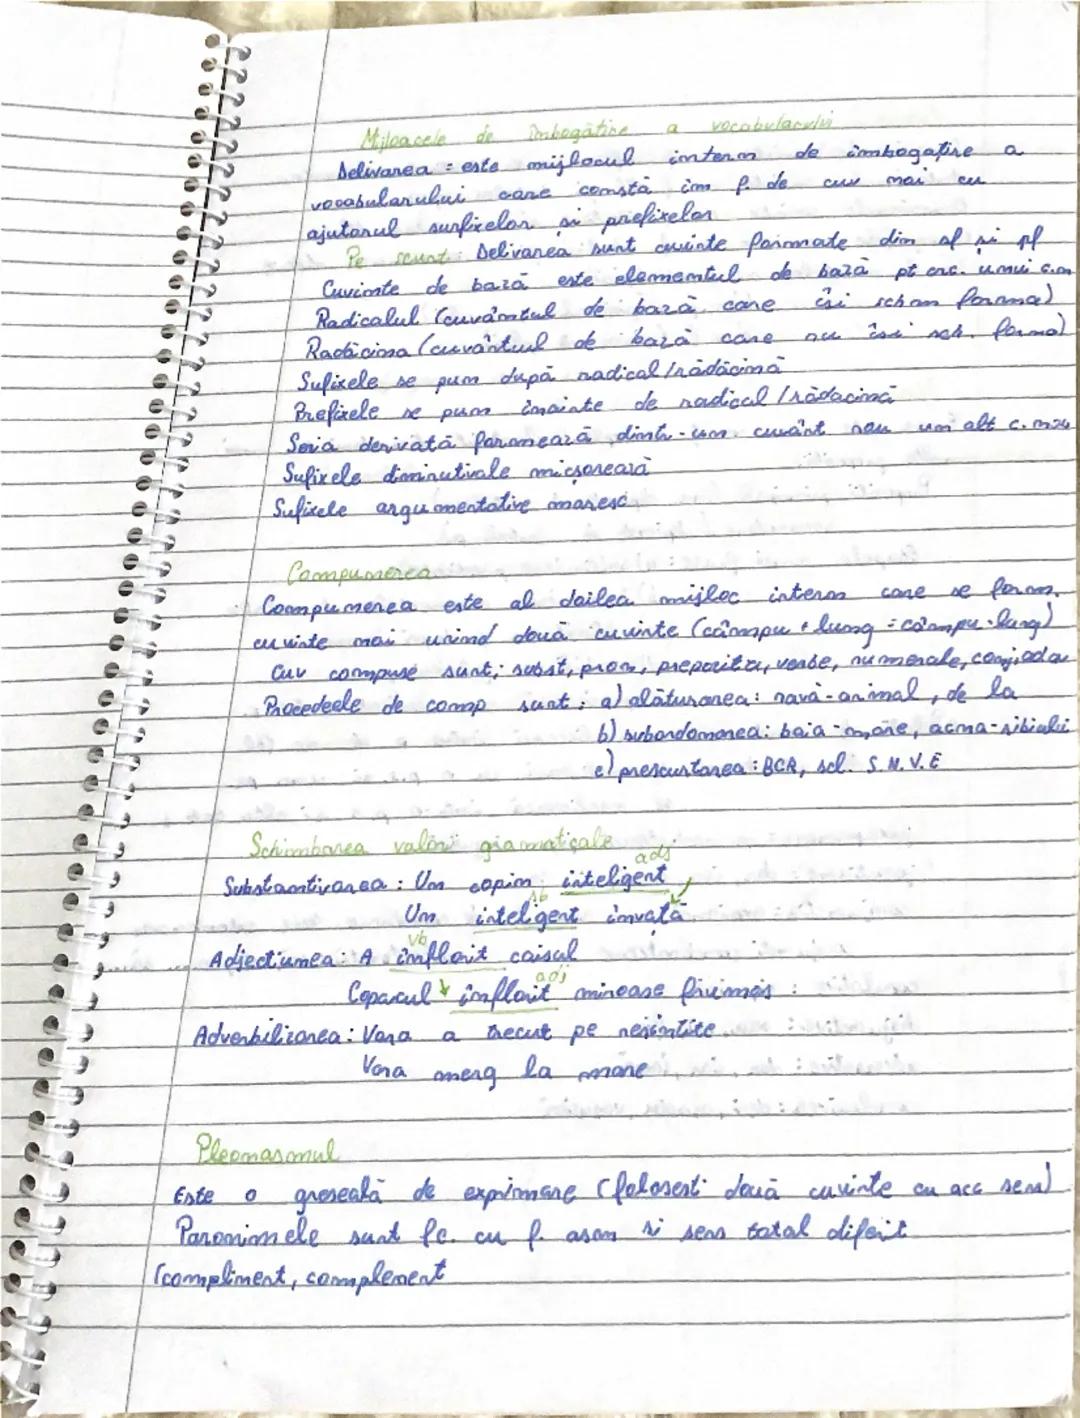 Mijloacele de îmbogățire a vocabularului
Derivarea = este mijlocul intern de îmbogațire a
vocabularului care constă în f. de cuv noi cu
ajutorul surfixelor și prefixelor
Pe scurt: Derivarea sunt cuvinte formate din sf și pf
Cuvinte de bază este elementul de bază pt crc. unui c.n
Radicalul (cuvântul de bază care își schm forma)
Radăcina (cuvântuul de bază care nu își sch. forma)
Sufixele se pun după radical/rădăcină
Prefixele se pun înainte de radical/rădacină
Seria derivată formează dintr-un cuvânt nou un alt c. nou
Sufixele diminutivale micșorează
Sufixele argumentative maresc
Compunerea
Compunerea este al doilea mijloc intern care se form.
cuvinte noi unind două cuvinte (câmpu + lung = câmpu-lung)
Cuv compuse sunt; subst, pron, prepoziții, verbe, numerale, conj, adv
Procedeele de comp sunt: a) alăturarea: navă-animal, de la
b) subordonarea: baia-mare, acma-sibiului
c) prescurtarea: BCR, scl. S.N.V.E
Schimbarea valori gramaticale
adj
Substantivarea: Un copin inteligent
sb
Un inteligent învață
vb
Adjectiunea: A înflorit caisul
adj
Copacul înflorit miroase frumos
Adverbilizarea: Vara a trecut pe nesimțite
Vara merg la mare
Pleonasmul
Este o greseală de exprimare (folosesti două cuvinte cu acc sens)
Paronimele sunt fc. cu f. asem si sens total diferit
(compliment, complement